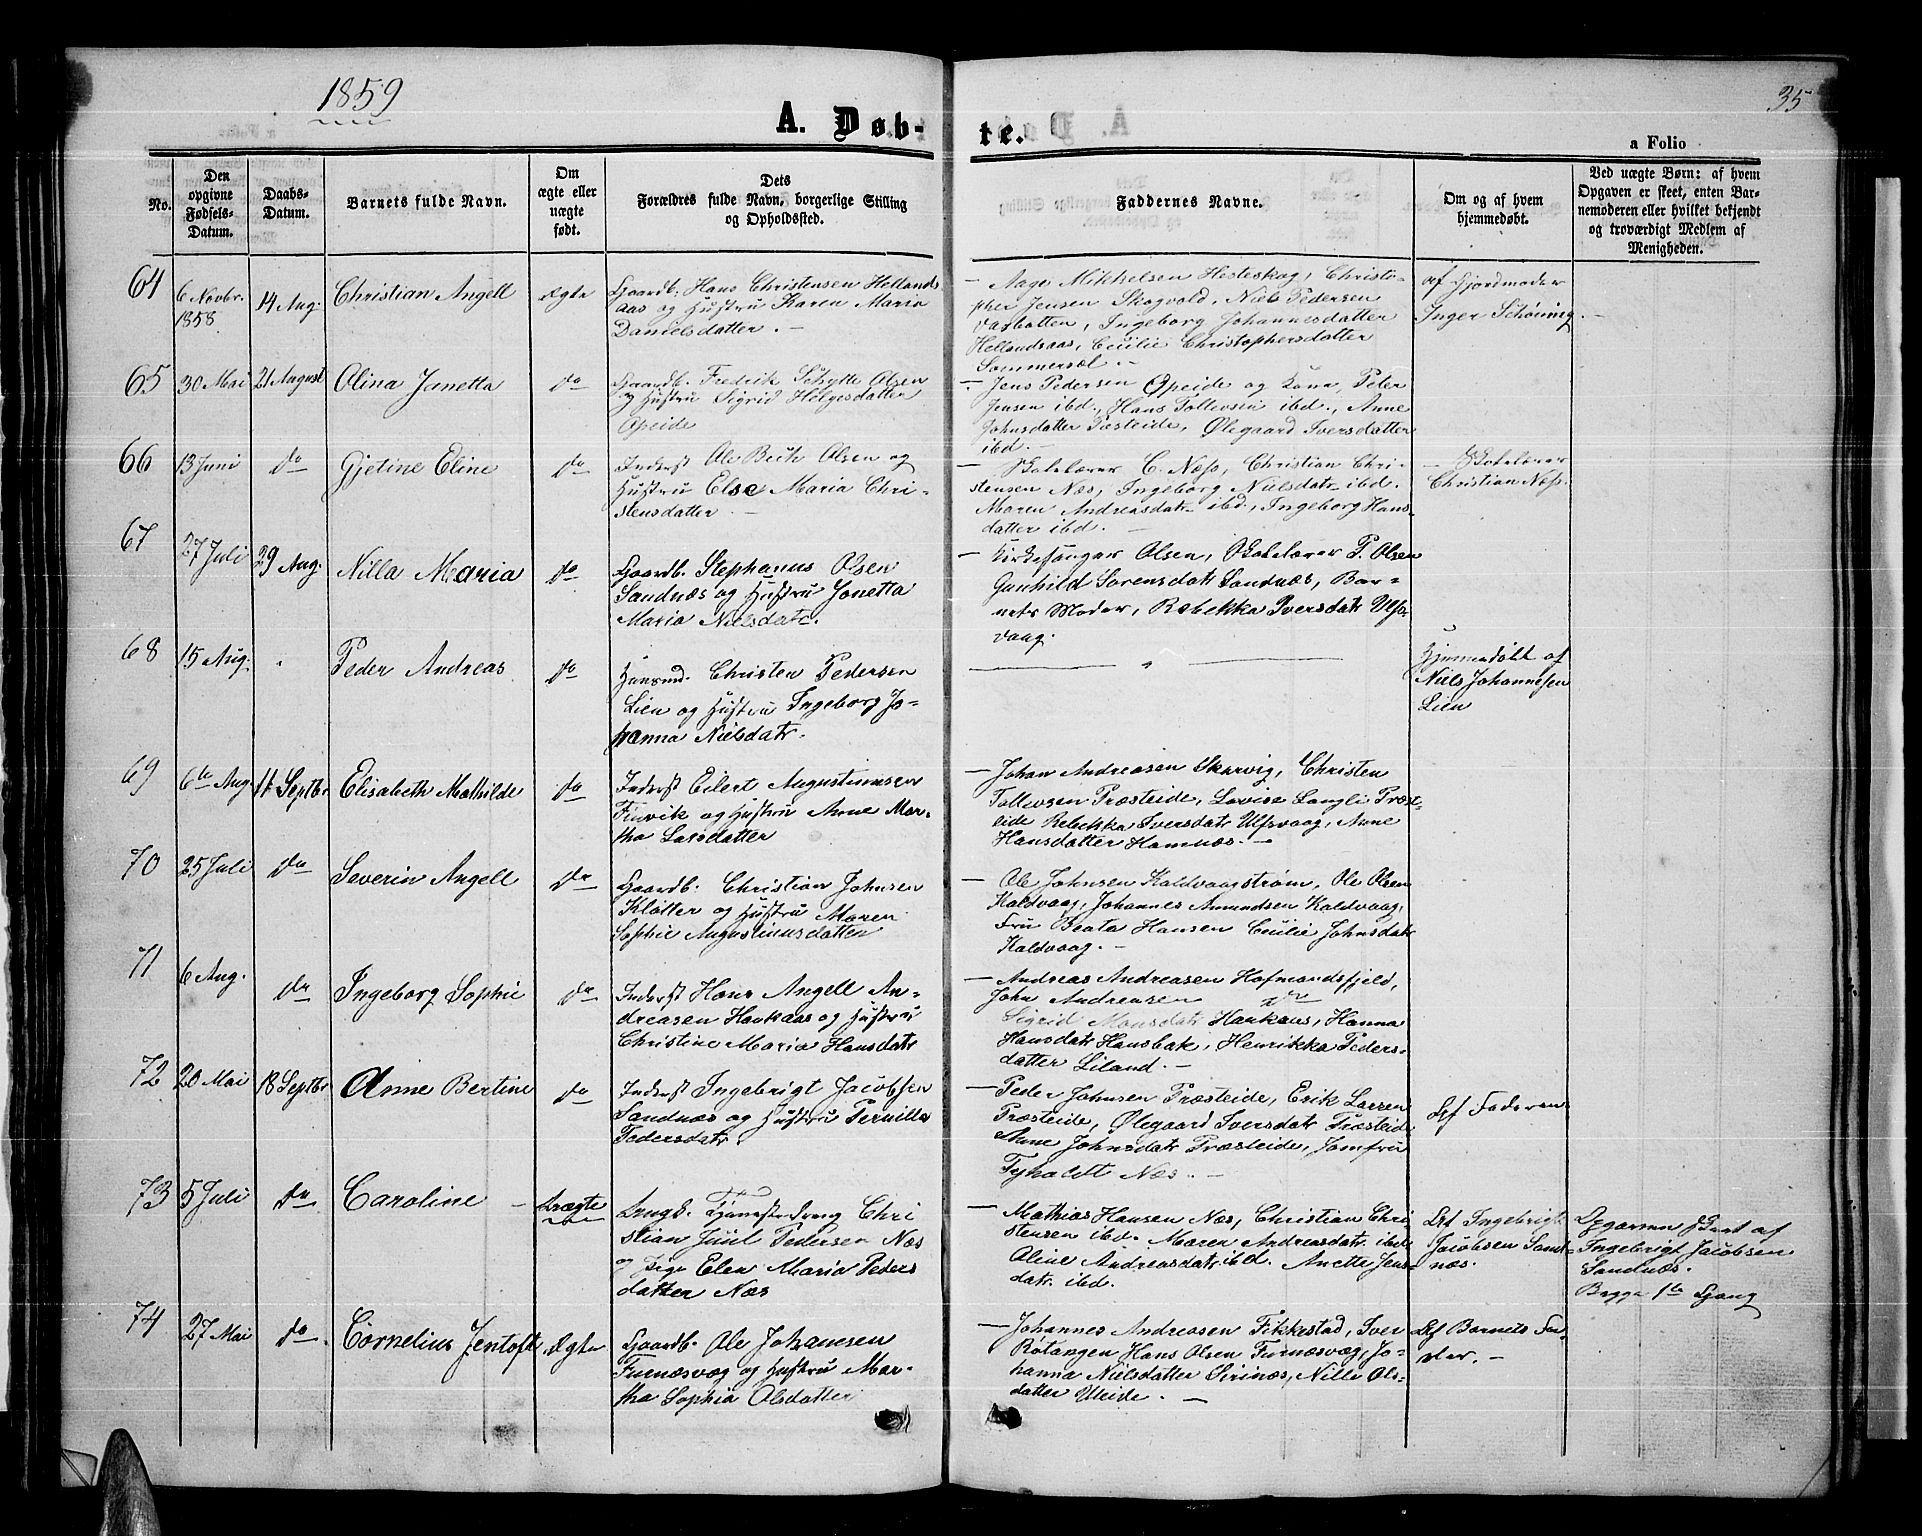 1859
35
A. Døb-
te.
a Folio
No.
Den
opgivne
Fødsels-
Datum.
Daabs-
Datum.
Barnets fulde Navn.
Om
ægte eller
uægte
født.
Dets
Forældres fulde Navn, borgerlige Stilling
og Opholdssted.
Faddernes Navne.
Om og af hvem
hjemmedøbt.
Ved uægte Børn: af hvem
Opgaven er skeet, enten Bar-
nemoderen eller hvilket bekjendt
og troværdigt Medlem af
Menigheden.
64
6 Novbr.
1858
14 Aug.
Christian Angell
Ægte
Gaardb. Hans Christensen Hellands
aas og Hustru Karen Maria
Danielsdatter. —
— Aage Mikkelsen Hesteskog, Christo-
pher Jensen Skogvold, Niels Pedersen
Vasbotten, Ingeborg Johannesdatter
Hellandsaas, Cecilie Christophersdatter
Sommersæl. —
af Gjordmoder
Inger Schøning. —
65
30 Mai
21 August
Olina Janetta
do
Gaardb. Fredrik Schytte Olsen
og Hustru Sigrid Helgesdatter
Opeide
— Jens Pedersen Opeide og Kone, Peter
Jensen ibd., Hans Tollevsen ibd., Anne
Johnsdatter Præsteide, Ølegaard Iversdatter
ibd. —
66
13 Juni
do
Gjetine Eline
do
Inderst Ole Beck Olsen og
Hustru Else Maria Chri-
stensdatter. —
— Skolelærer C. Næss, Christian Chri-
stensen Næs, Ingeborg Nielsdatr ibd.
Maren Andreasdatr ibd., Ingeborg Hans-
datter ibd. —
— Skolelærer
Christian Næss.
67
27 Juli
29 Aug.
Nilla Maria
do
Gaardb. Stephanus Olsen
Sandnæs og Hustru Janetta
Maria Nielsdatr.
— Kirkesanger Olsen, Skolelærer P. Olsen
Gunhild Sørensdatr Sandnæs, Bar-
nets Moder, Rebekka Iversdatr Ulfs-
vaag.
68
15 Aug.
Peder Andreas
do
Huusmd. Christen Pedersen
Lien og Hustru Ingeborg Jo-
hanna Nielsdatr.
Hjemmedøbt af
Niels Johannesen
Lien
69
6te Aug
11 Septbr
Elisabeth Mathilde
do
Inderst Eilert Augustinusen
Finvik og Hustru Anne Mar-
tha Larsdatter
— Johan Andreasen Skarvig, Christen
Tollevsen Præsteide, Lovise Langli Præst-
eide Rebekka Iversdatr Ulfsvaag, Anne
Hansdatter Hamnæs. —
70
25 Juli
do
Severin Angell
do
Gaardb. Christian Johnsen
Kløtter og Hustru Maren
Sophie Augustinusdatter
— Ole Johnsen Kaldvaagstrøm, Ole Olsen
Kaldvaag, Johannes Amundsen Kaldvaag,
Fru Beata Hansen Cecilie Johnsdatr
Kaldvaag. —
71
6 Aug.
do
Ingeborg Sophie
do
Inderst Hans Angell An-
dreasen Haukaas og Hustru
Christine Maria Hansdatr
— Andreas Andreasen Hofmandsfjeld,
John Andreasen do
Sigrid Monsdatr Haukaas, Hanna
Hansdatr Hansbak, Henrikka Peders-
datter Liland. —
72
20 Mai
18 Septbr
Anne Bertine
do
Inderst Ingebrigt Jacobsen
Sandnæs og Hustru Pernille
Pedersdatr.
— Peder Johnsen Præsteide, Erik Larsen
Præsteide, Ølegaard Iversdatr Præsteide
Anne Johnsdatr Præsteide, Jomfru
Tyholdt Næs. —
Af Faderen
73
5 Juli
do
Caroline —
Uægte
Ungk. Tjenestedreng Chri
stian Juul Pedersen Næs
og Pige Elen Maria Peders
datter Næs
— Mathias Hansen Næs, Christian Chri-
stensen ibd. Maren Andreasdatr. ibd.
Oline Andreasdatr ibd. Anette Jens-
datr. ibd.
Af Ingebrigt
Jacobsen Sand-
næs.
Opgaven skeet af
Ingebrigt Jacobsen
Sandnæs.
Begge 1te Gang
74
27 Mai
do
Cornelius Jentoft
Ægte
Gaardb. Ole Johansen
Furnæsvæg og Hustru Mar-
tha Sophia Olsdatter
— Johannes Andreasen Fikkestad, Iver
Røtangen Hans Olsen Furnæsvæg, Jo-
hanna Nielsdatter Sirinæs, Nille Ols-
datter Uleide. —
Af Barnets Fa-
der. —